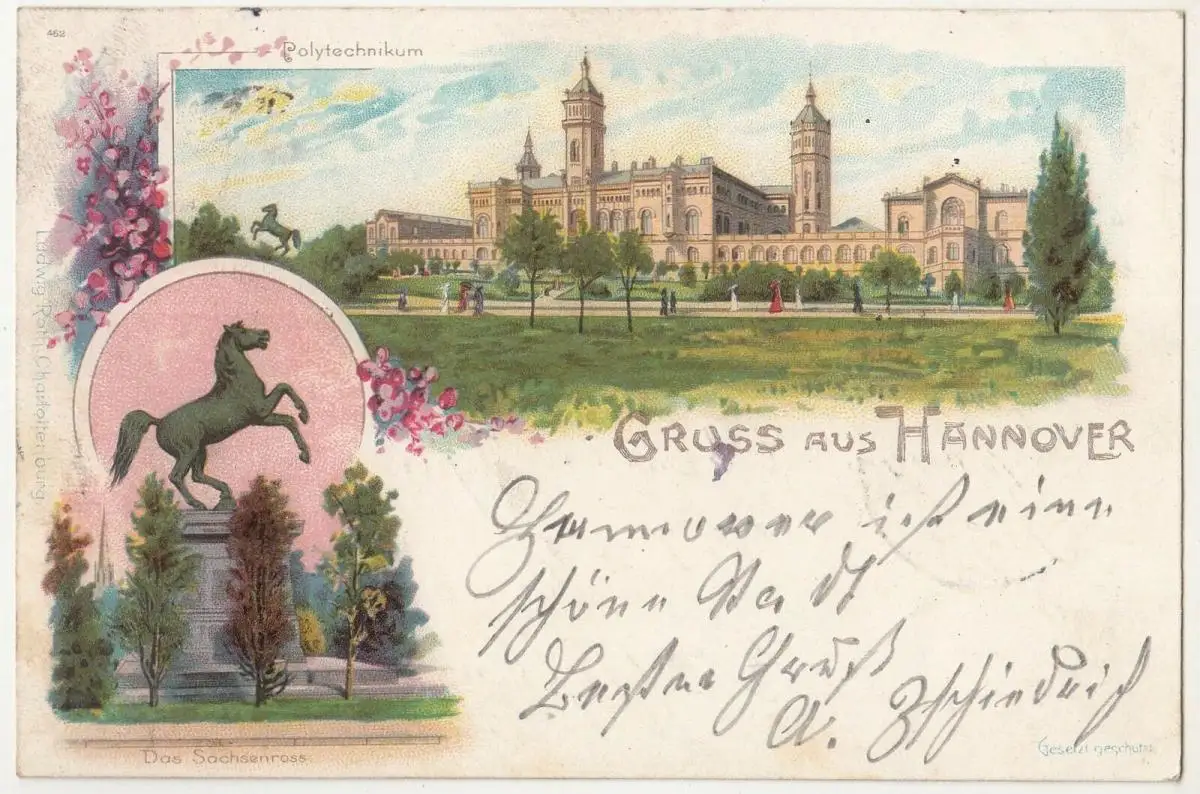 462
Polytechnikum
Ludwig Roth, Charlottenburg
GRUSS AUS HANNOVER
Hannover ist eine
schöne Stadt
Besten Gruß
A. Zschiedrich
Das Sachsenross
Gesetzl. geschützt